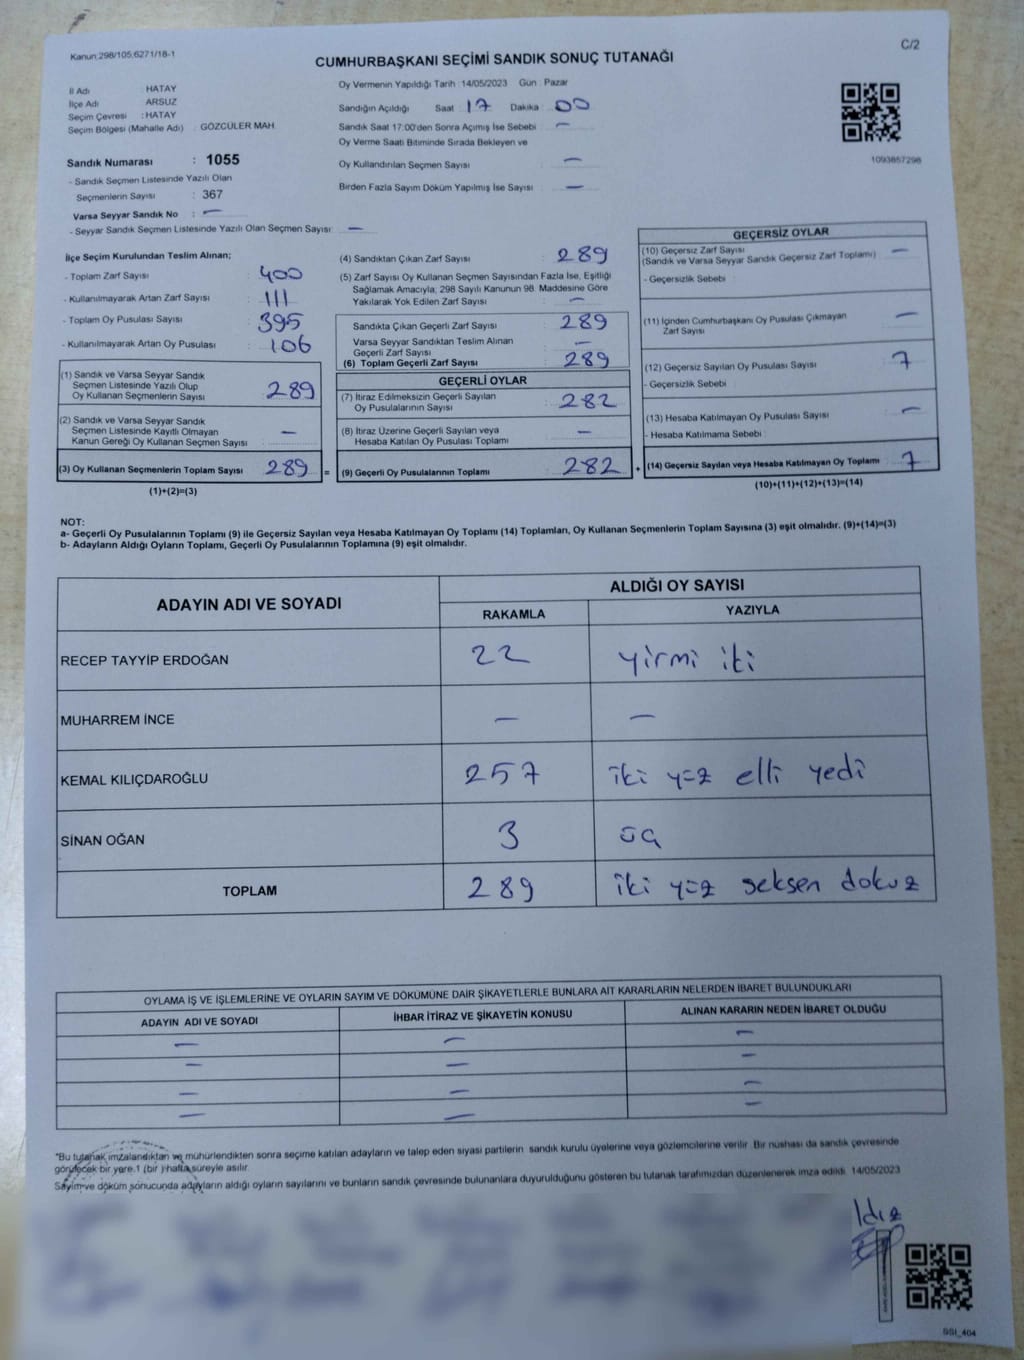 Kanun:298/105,6271/18-1
C/2
CUMHURBAŞKANI SEÇİMİ SANDIK SONUÇ TUTANAĞI
İl Adı HATAY
İlçe Adı ARSUZ
Seçim Çevresi : HATAY
Seçim Bölgesi (Mahalle Adı) : GÖZCÜLER MAH.
Sandık Numarası : 1055
- Sandık Seçmen Listesinde Yazılı Olan
Seçmenlerin Sayısı : 367
Varsa Seyyar Sandık No : —
- Seyyar Sandık Seçmen Listesinde Yazılı Olan Seçmen Sayısı: —
Oy Vermenin Yapıldığı Tarih : 14/05/2023 Gün : Pazar
Sandığın Açıldığı Saat 17 Dakika : 00
Sandık Saat 17:00'den Sonra Açımış İse Sebebi : —
Oy Verme Saati Bitiminde Sırada Bekleyen ve
Oy Kullandırılan Seçmen Sayısı : —
Birden Fazla Sayım Döküm Yapılmış İse Sayısı : —
1093857298
İlçe Seçim Kurulundan Teslim Alınan;
- Toplam Zarf Sayısı : 400
- Kullanılmayarak Artan Zarf Sayısı : 111
- Toplam Oy Pusulası Sayısı : 395
- Kullanılmayarak Artan Oy Pusulası : 106
(1) Sandık ve Varsa Seyyar Sandık
Seçmen Listesinde Yazılı Olup
Oy Kullanan Seçmenlerin Sayısı : 289
(2) Sandık ve Varsa Seyyar Sandık
Seçmen Listesinde Kayıtlı Olmayan
Kanun Gereği Oy Kullanan Seçmen Sayısı : —
(3) Oy Kullanan Seçmenlerin Toplam Sayısı : 289 =
(1)+(2)=(3)
(4) Sandıktan Çıkan Zarf Sayısı : 289
(5) Zarf Sayısı Oy Kullanan Seçmen Sayısından Fazla İse, Eşitliği
Sağlamak Amacıyla; 298 Sayılı Kanunun 98. Maddesine Göre
Yakılarak Yok Edilen Zarf Sayısı : —
Sandıkta Çıkan Geçerli Zarf Sayısı : 289
Varsa Seyyar Sandıktan Teslim Alınan
Geçerli Zarf Sayısı : —
(6) Toplam Geçerli Zarf Sayısı : 289
GEÇERLİ OYLAR
(7) İtiraz Edilmeksizin Geçerli Sayılan
Oy Pusulalarının Sayısı : 282
(8) İtiraz Üzerine Geçerli Sayılan veya
Hesaba Katılan Oy Pusulası Toplamı : —
(9) Geçerli Oy Pusulalarının Toplamı : 282 +
GEÇERSİZ OYLAR
(10) Geçersiz Zarf Sayısı : —
(Sandık ve Varsa Seyyar Sandık Geçersiz Zarf Toplamı)
- Geçersizlik Sebebi :
(11) İçinden Cumhurbaşkanı Oy Pusulası Çıkmayan
Zarf Sayısı : —
(12) Geçersiz Sayılan Oy Pusulası Sayısı : 7
- Geçersizlik Sebebi :
(13) Hesaba Katılmayan Oy Pusulası Sayısı : —
- Hesaba Katılmama Sebebi :
(14) Geçersiz Sayılan veya Hesaba Katılmayan Oy Toplamı : 7
(10)+(11)+(12)+(13)=(14)
NOT:
a- Geçerli Oy Pusulalarının Toplamı (9) ile Geçersiz Sayılan veya Hesaba Katılmayan Oy Toplamı (14) Toplamları, Oy Kullanan Seçmenlerin Toplam Sayısına (3) eşit olmalıdır. (9)+(14)=(3)
b- Adayların Aldığı Oyların Toplamı, Geçerli Oy Pusulalarının Toplamına (9) eşit olmalıdır.
ADAYIN ADI VE SOYADI ALDIĞI OY SAYISI
RAKAMLA YAZIYLA
RECEP TAYYİP ERDOĞAN 22 yirmi iki
MUHARREM İNCE — —
KEMAL KILIÇDAROĞLU 257 iki yüz elli yedi
SİNAN OĞAN 3 üç
TOPLAM 289 iki yüz seksen dokuz
OYLAMA İŞ VE İŞLEMLERİNE VE OYLARIN SAYIM VE DÖKÜMÜNE DAİR ŞİKAYETLERLE BUNLARA AİT KARARLARIN NELERDEN İBARET BULUNDUKLARI
ADAYIN ADI VE SOYADI İHBAR İTİRAZ VE ŞİKAYETİN KONUSU ALINAN KARARIN NEDEN İBARET OLDUĞU
— — —
— — —
— — —
— — —
*Bu tutanak imzalandıktan ve mühürlendikten sonra seçime katılan adayların ve talep eden siyasi partilerin sandık kurulu üyelerine veya gözlemcilerine verilir. Bir nüshası da sandık çevresinde
görülecek bir yere 1 (bir ) hafta süreyle asılır.
Sayım ve döküm sonucunda adayların aldığı oyların sayılarını ve bunların sandık çevresinde bulunanlara duyurulduğunu gösteren bu tutanak tarafımızdan düzenlenerek imza edildi. 14/05/2023
SSI_404